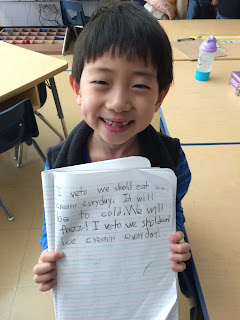 I veto we shold eat ice
cream evryday. It will
be to cold. We will
frezz! I veto we sholdent
ice cream everyday!